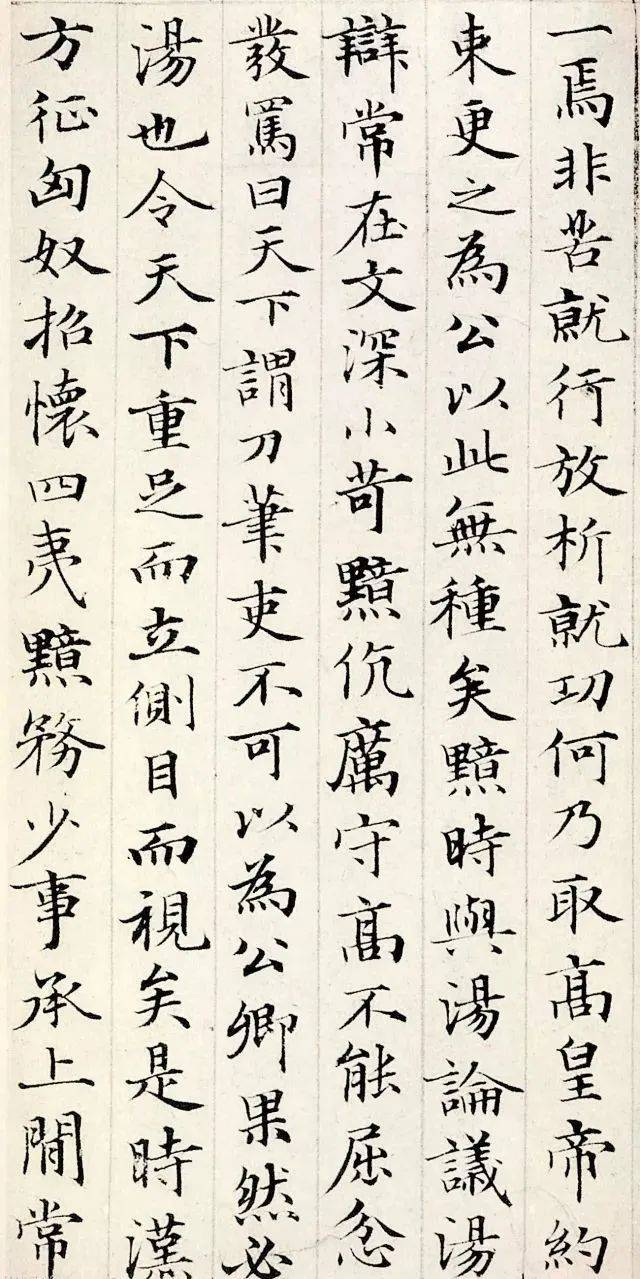 一焉非苦就行放析就功何乃取高皇帝約
束更之為公以此無種矣黯時與湯論議湯
辯常在文深小苛黯伉厲守高不能屈忿
發罵曰天下謂刀筆吏不可以為公卿果然必
湯也令天下重足而立側目而視矣是時漢
方征匈奴招懷四夷黯務少事承上閒常